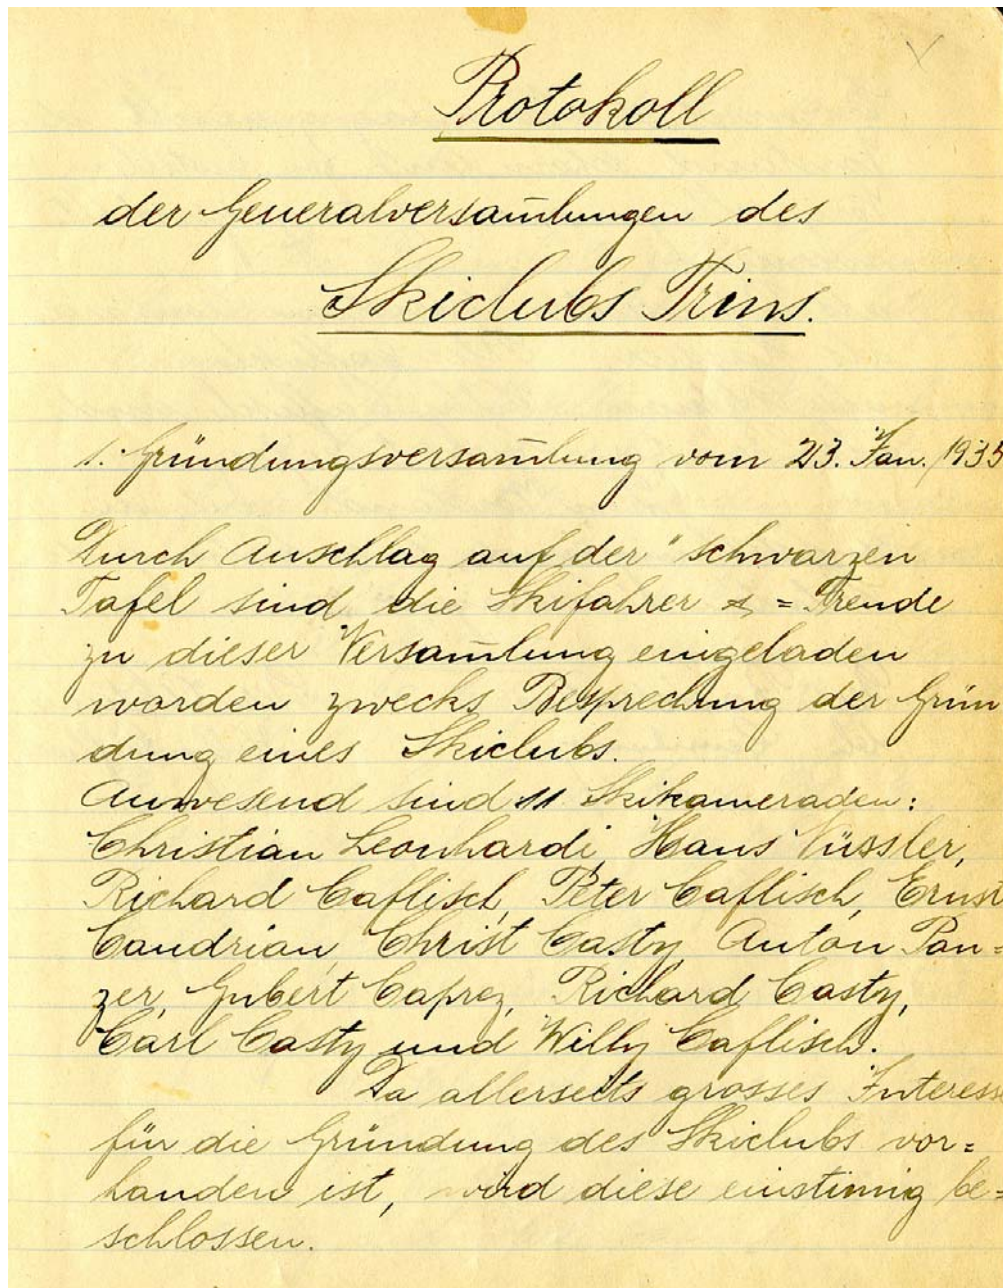 Protokoll
der Generalversam̅lungen des
Skiclubs Trins.
1. Gründungsversam̅lung vom 23. Jan. 1935
Durch Anschlag auf der "schwarzen
Tafel sind die Skifahrer & = Freude
zu dieser Versam̅lung eingeladen
worden zwecks Besprechung der Grün
dung eines Skiclubs.
Anwesend sind 11 Skikameraden:
Christian Leonhardi, Hans
Richard Caflisch, Peter Caflisch, Ernst
Caudrian, Christ Casty, Anton Pan=
zer, Gubert Caprez, Richard Casty,
Carl Casty und Willy Caflisch.
Da allerseits grosses Interesse
für die Gründung des Skiclubs vor=
handen ist, wird diese einstim̅ig be=
schlossen.